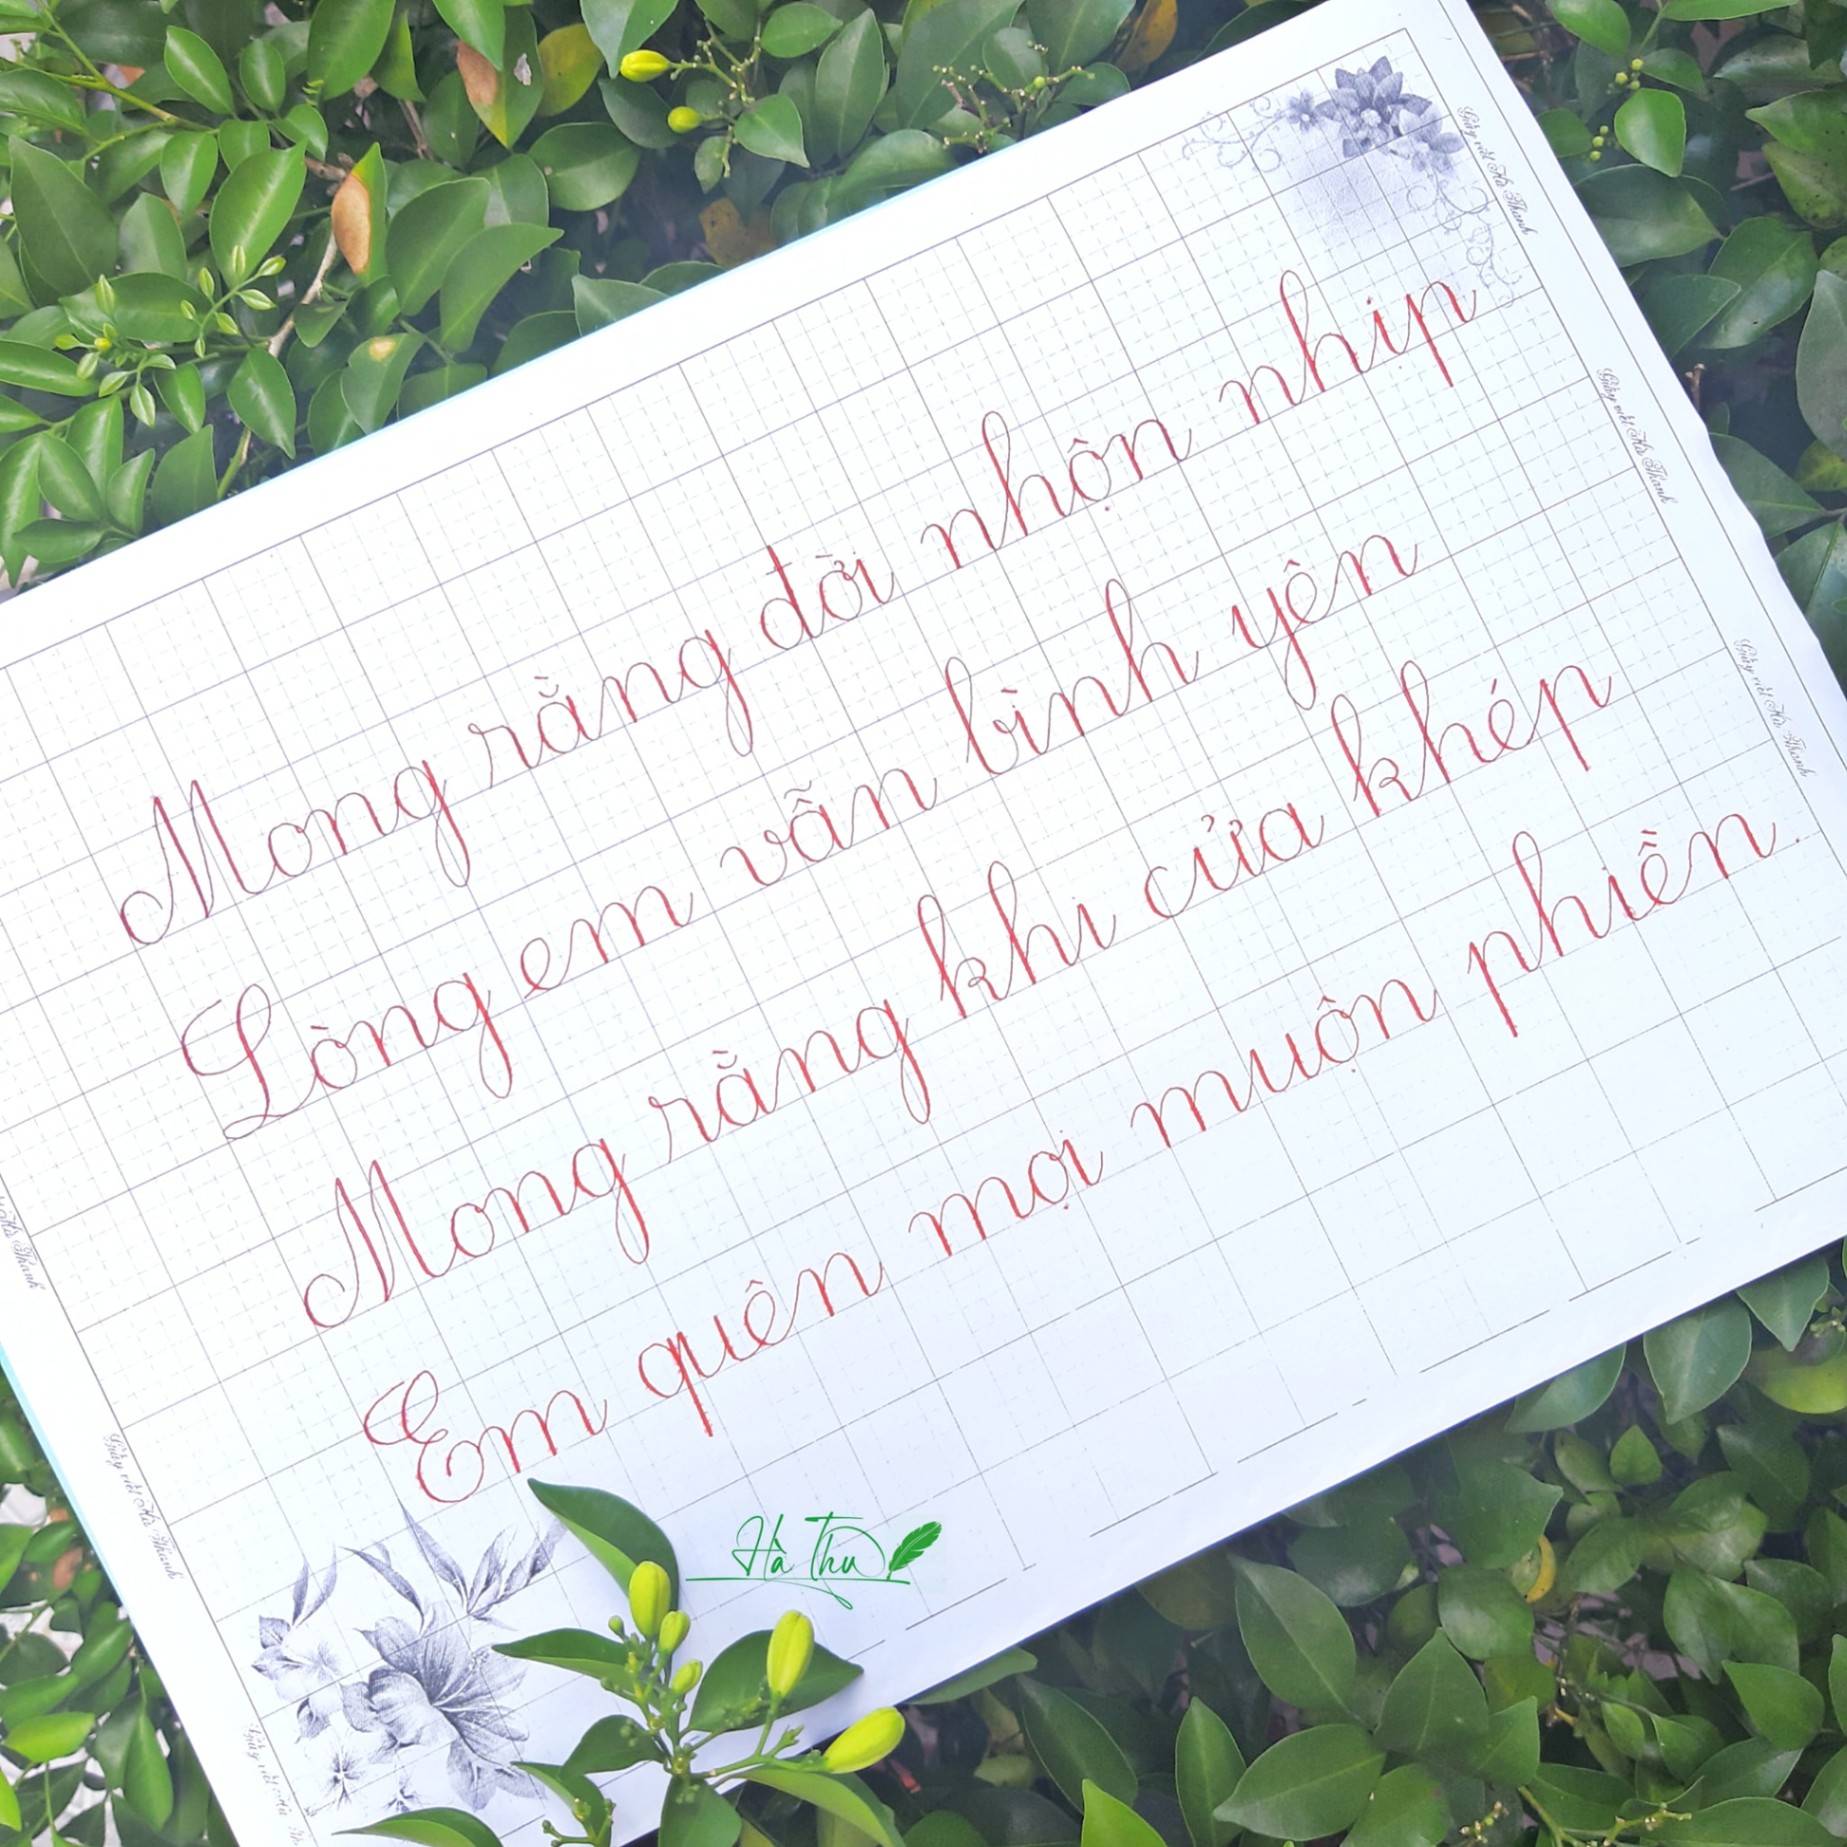 Mong rằng đời nhộn nhịp
Lòng em vẫn bình yên
Mong rằng khi cửa khép
Em quên mọi muộn phiền.
Hà Thu
Giấy viết Hà Thanh
Giấy viết Hà Thanh
Giấy viết Hà Thanh
Hà Thanh
Giấy viết Hà Thanh
Giấy viết Hà